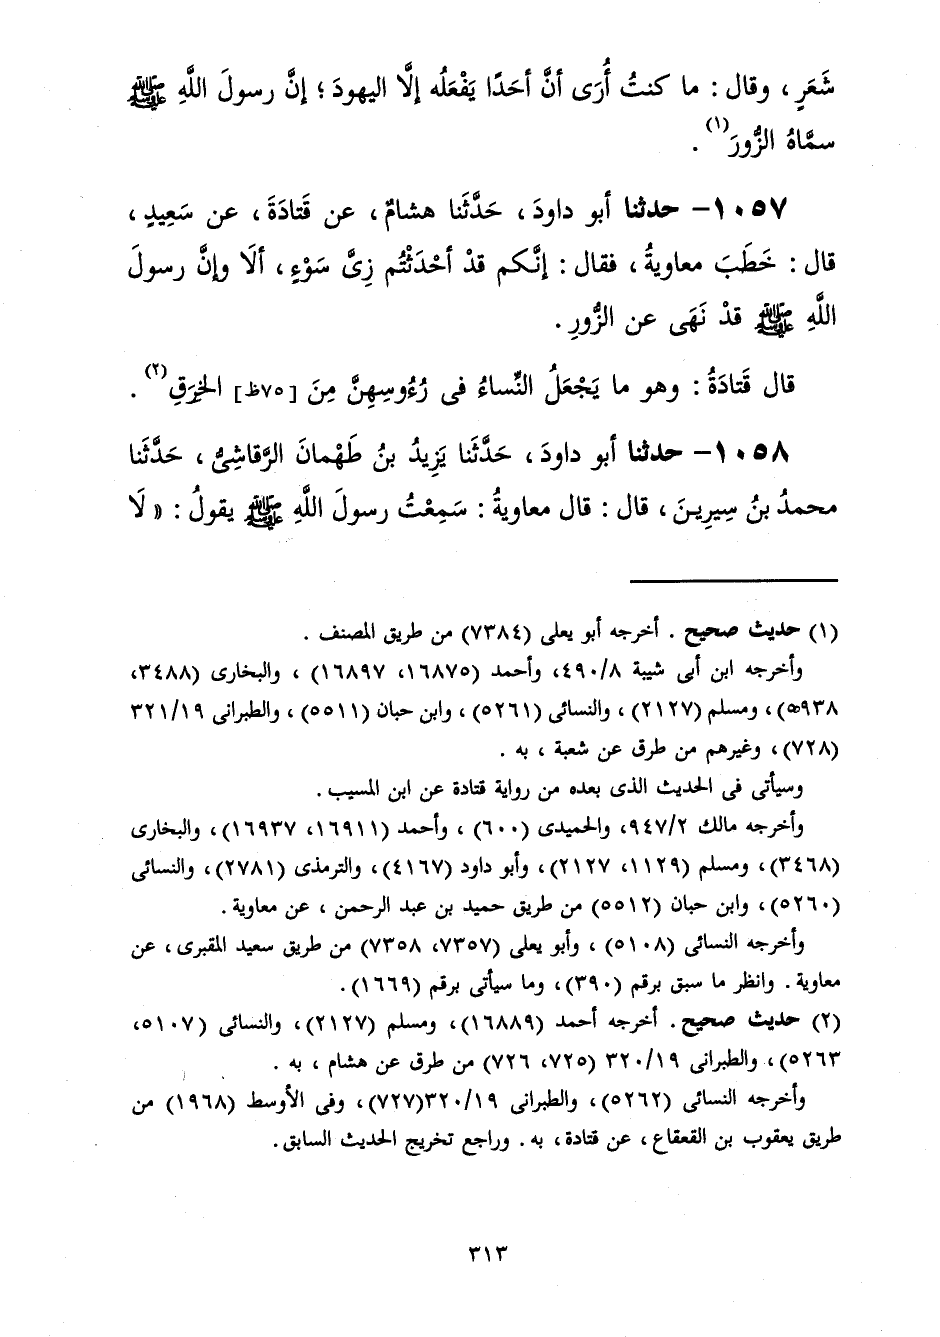 شَعَرٍ ، وقال : ما كنتُ أُرَى أنَّ أحَدًا يَفْعَلُه إلَّا اليهودَ ؛ إنَّ رسولَ اللَّهِ ﷺ
سمَّاهُ الزُّورَ(١) .
١٠٥٧- حدثنا أبو داودَ ، حَدَّثَنا هشامٌ ، عن قَتادَةَ ، عن سَعِيدٍ ،
قال : خَطَبَ معاويةُ ، فقال : إنَّكم قدْ أحْدَثْتُم زِىَّ سَوْءٍ ، ألَا وإنَّ رسولَ
اللَّهِ ﷺ قدْ نَهَى عن الزُّورِ .
قال قَتادَةُ : وهو ما يَجْعَلُ النِّساءُ فى رُءُوسِهِنَّ مِنَ [٧٥ظ] الخِرَقِ(٢) .
١٠٥٨- حدثنا أبو داودَ ، حَدَّثَنا يَزِيدُ بنُ طَهْمانَ الرَّقاشِىُّ ، حَدَّثَنا
محمدُ بنُ سِيرِينَ ، قال : قال معاويةُ : سَمِعْتُ رسولَ اللَّهِ ﷺ يقولُ : « لَا
(١) حديث صحيح . أخرجه أبو يعلى (٧٣٨٤) من طريق المصنف .
وأخرجه ابن أبى شيبة ٤٩٠/٨، وأحمد (١٦٨٧٥، ١٦٨٩٧) ، والبخارى (٣٤٨٨،
٥٩٣٨)، ومسلم (٢١٢٧) ، والنسائى (٥٢٦١) ، وابن حبان (٥٥١١) ، والطبرانى ٣٢١/١٩
(٧٢٨)، وغيرهم من طرق عن شعبة ، به .
وسيأتى فى الحديث الذى بعده من رواية قتادة عن ابن المسيب .
وأخرجه مالك ٩٤٧/٢، والحميدى (٦٠٠) ، وأحمد (١٦٩١١، ١٦٩٣٧)، والبخارى
(٣٤٦٨)، ومسلم (١١٢٩، ٢١٢٧)، وأبو داود (٤١٦٧)، والترمذى (٢٧٨١)، والنسائى
(٥٢٦٠)، وابن حبان (٥٥١٢) من طريق حميد بن عبد الرحمن ، عن معاوية .
وأخرجه النسائى (٥١٠٨) ، وأبو يعلى (٧٣٥٧، ٧٣٥٨) من طريق سعيد المقبرى ، عن
معاوية . وانظر ما سبق برقم (٣٩٠)، وما سيأتى برقم (١٦٦٩).
(٢) حديث صحيح . أخرجه أحمد (١٦٨٨٩)، ومسلم (٢١٢٧)، والنسائى (٥١٠٧،
٥٢٦٣)، والطبرانى ٣٢٠/١٩ (٧٢٥، ٧٢٦) من طرق عن هشام ، به .
وأخرجه النسائى (٥٢٦٢)، والطبرانى ٣٢٠/١٩(٧٢٧)، وفى الأوسط (١٩٦٨) من
طريق يعقوب بن القعقاع ، عن قتادة، به . وراجع تخريج الحديث السابق .
٣١٣